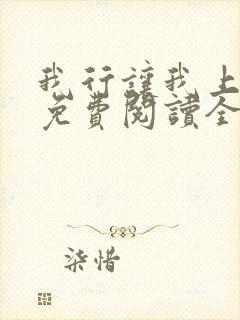 我行讓我上
免費閱讀全
柒惜